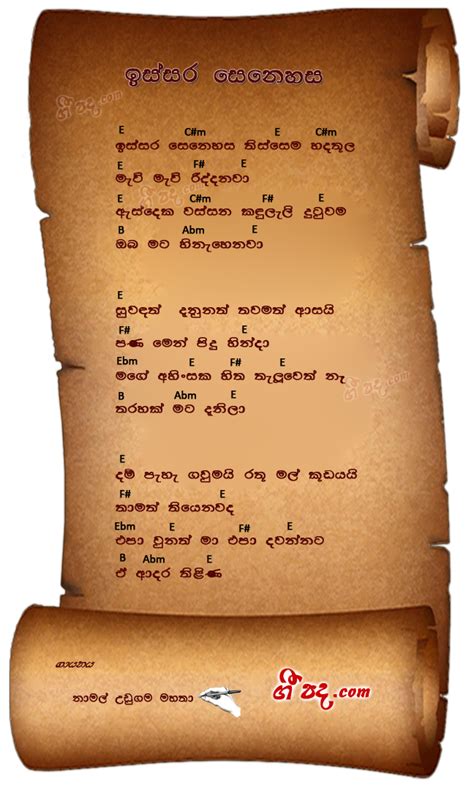 ඉස්සර සෙනෙහස
ගී පද.com
E C#m E C#m
ඉස්සර සෙනෙහස තිස්සෙම හදතුල
E F# E
මැවි මැවී රිද්දනවා
ගී පද.com
E C#m F# E
ඇස්දෙක වස්සන කඳුලැලි දුටුවම
B Abm E
ඔබ මට හිනැහෙනවා
E
සුවඳත් දනුනත් තවමත් ආසයි
F# E
පණ මෙන් පිදු හින්දා
Ebm E F# E
මගේ අහිංසක හිත තැලූවෙත් නෑ
ගී පද.com
B Abm E
තරහක් මට දනිලා
E
දම් පැහැ ගවුමයි රතු මල් කූඩයයි
F# E
තාමත් තියෙනවද
Ebm E F# E
එපා වුනත් මා එපා දවන්නට
B Abm E
ඒ ආදර තිළිණ
ගායනය
නාමල් උඩුගම මහතා
ගී පද.com